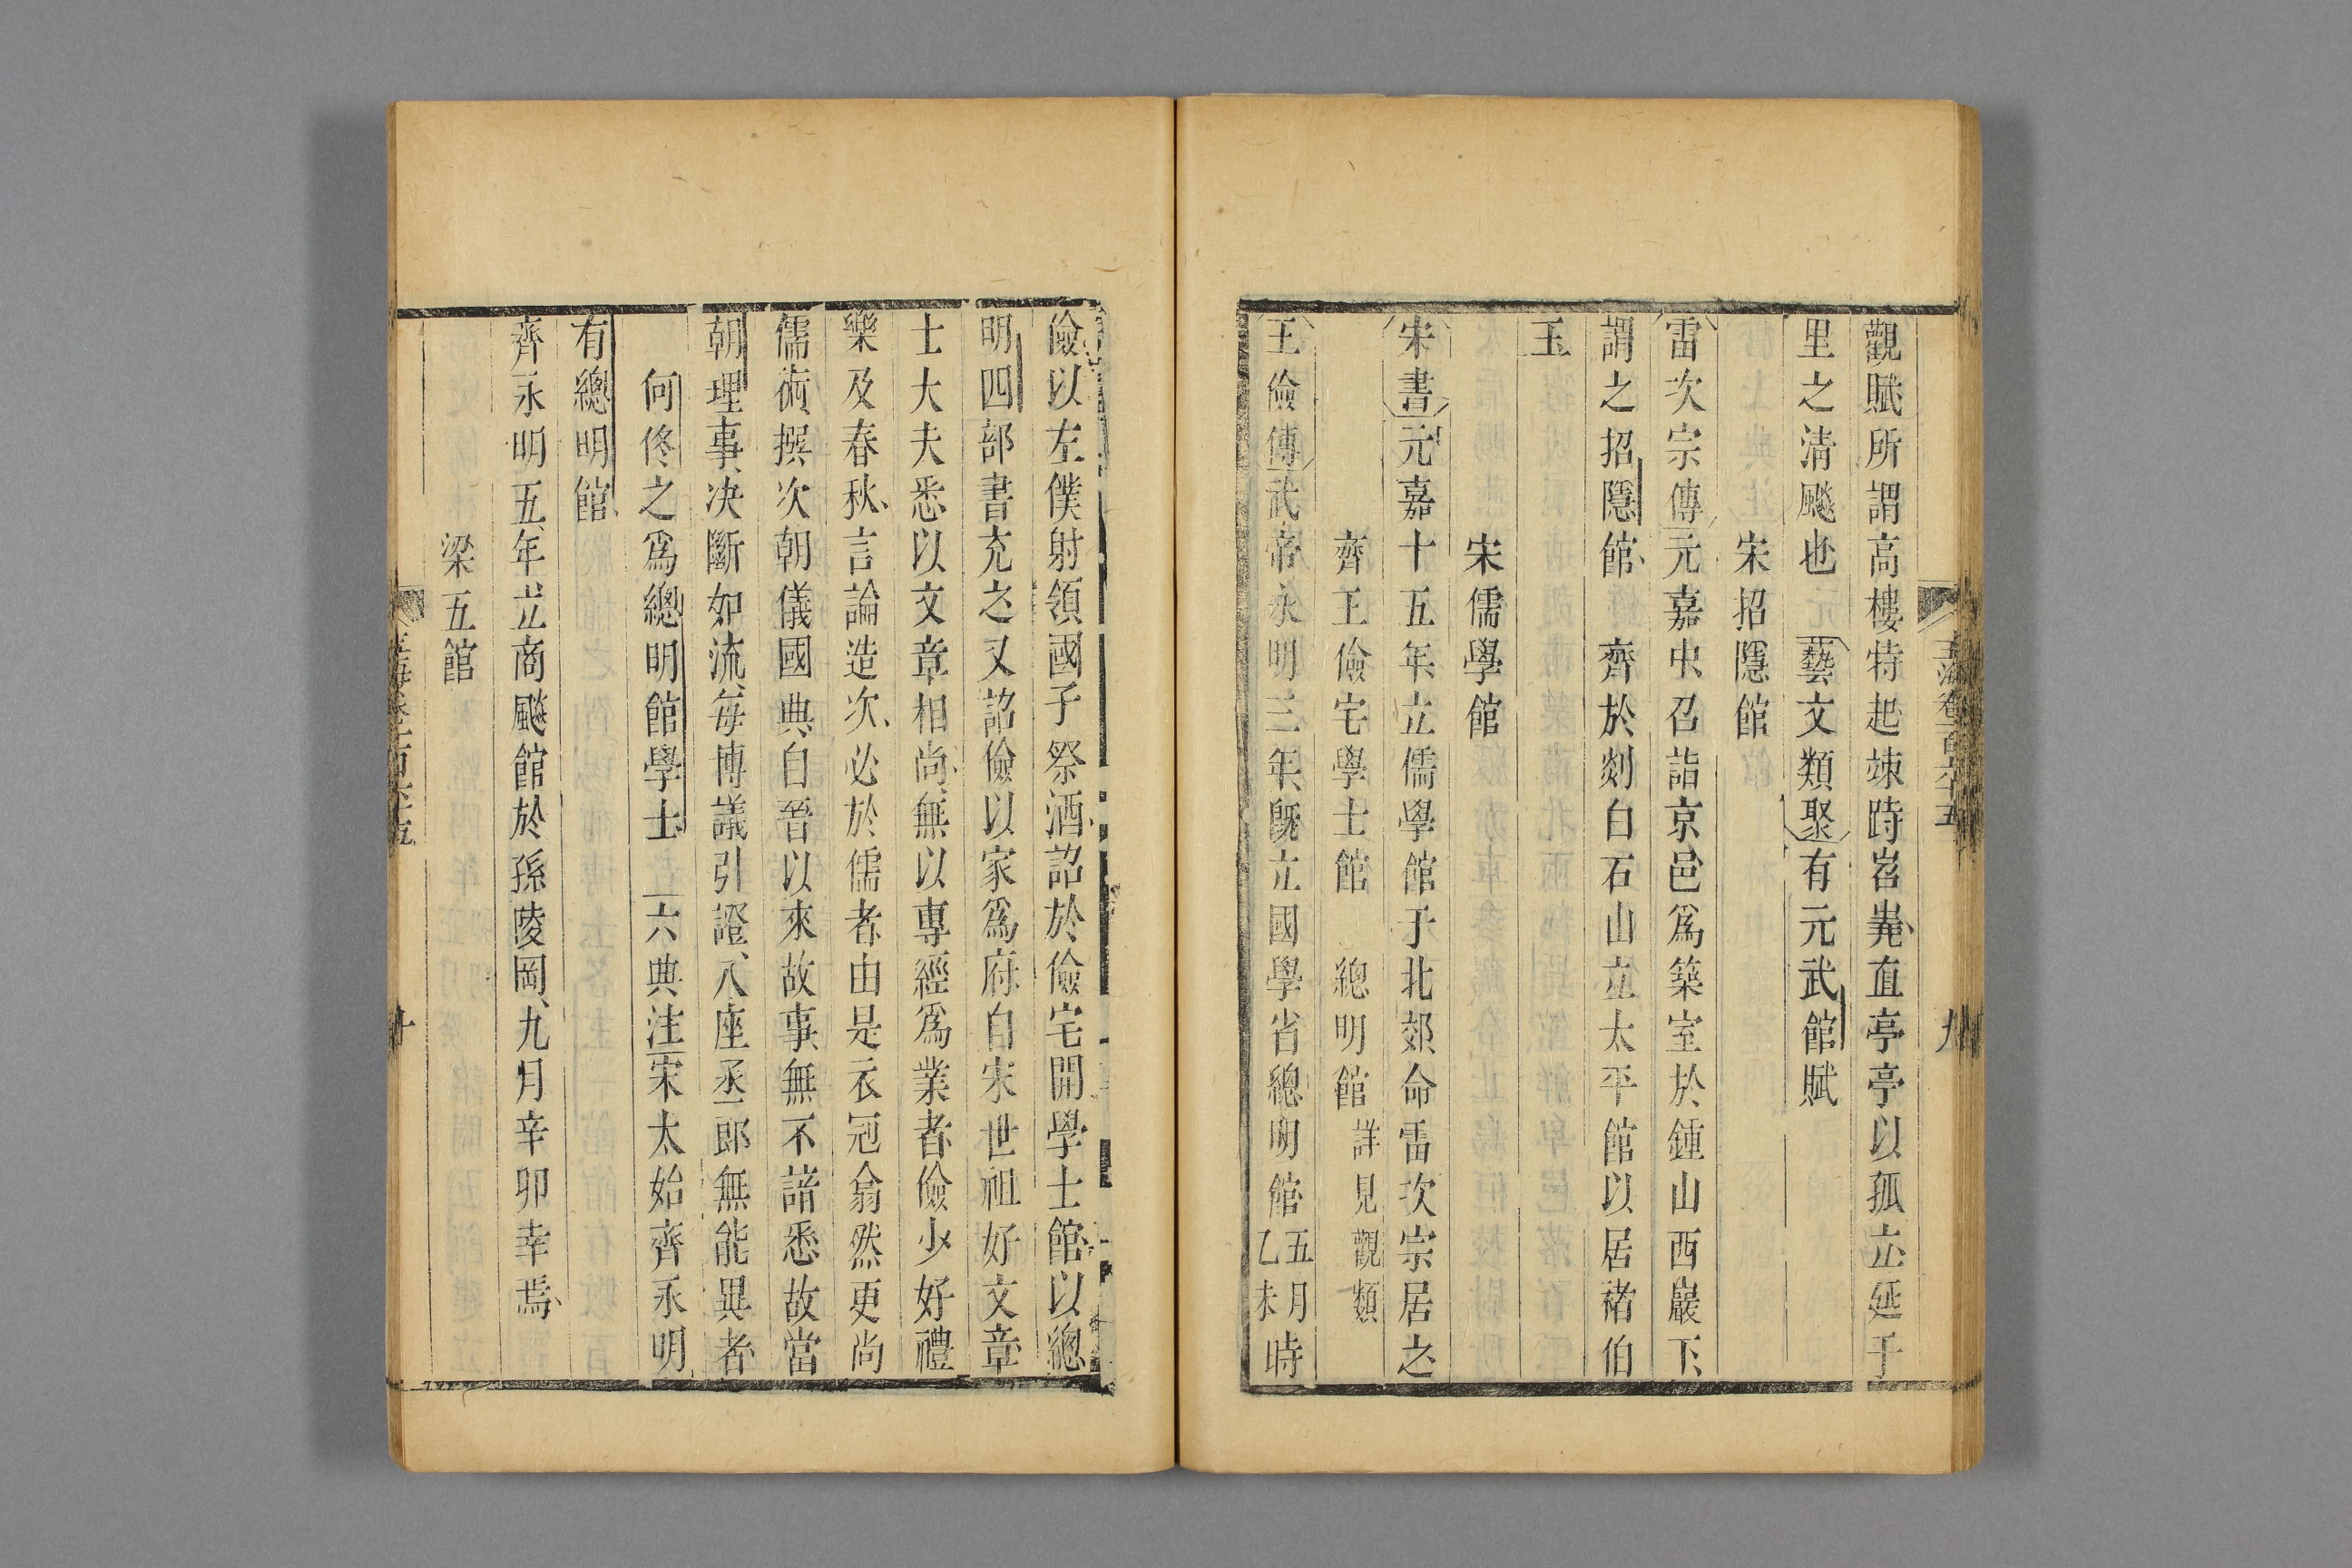 玉海卷一百六十五 九
觀賦所謂高樓特起竦跱岧嶤直亭亭以孤立延千
里之清飈也藝文類聚有元武館賦
宋招隱館
雷次宗傳元嘉中召詣京邑爲築室於鍾山西巖下
謂之招隱館 齊於剡白石山立太平館以居褚伯
玉
宋儒學館
宋書元嘉十五年立儒學館于北郊命雷次宗居之
齊王儉宅學士館 總明館詳見觀類
王儉傳武帝永明三年旣立國學省總明館五月乙未時
儉以左僕射領國子祭酒詔於儉宅開學士館以總
明四部書充之又詔儉以家爲府自宋世祖好文章
士大夫悉以文章相尚無以專經爲業者儉少好禮
樂及春秋言論造次必於儒者由是衣冠翕然更尚
儒術撰次朝儀國典自晉以來故事無不諳悉故當
朝理事決斷如流每博議引證八座丞郎無能異者
何佟之爲總明館學士 六典注宋太始齊永明
有總明館
齊永明五年立商飈館於孫陵岡九月辛卯幸焉
梁五館
玉海卷一百六十五 十